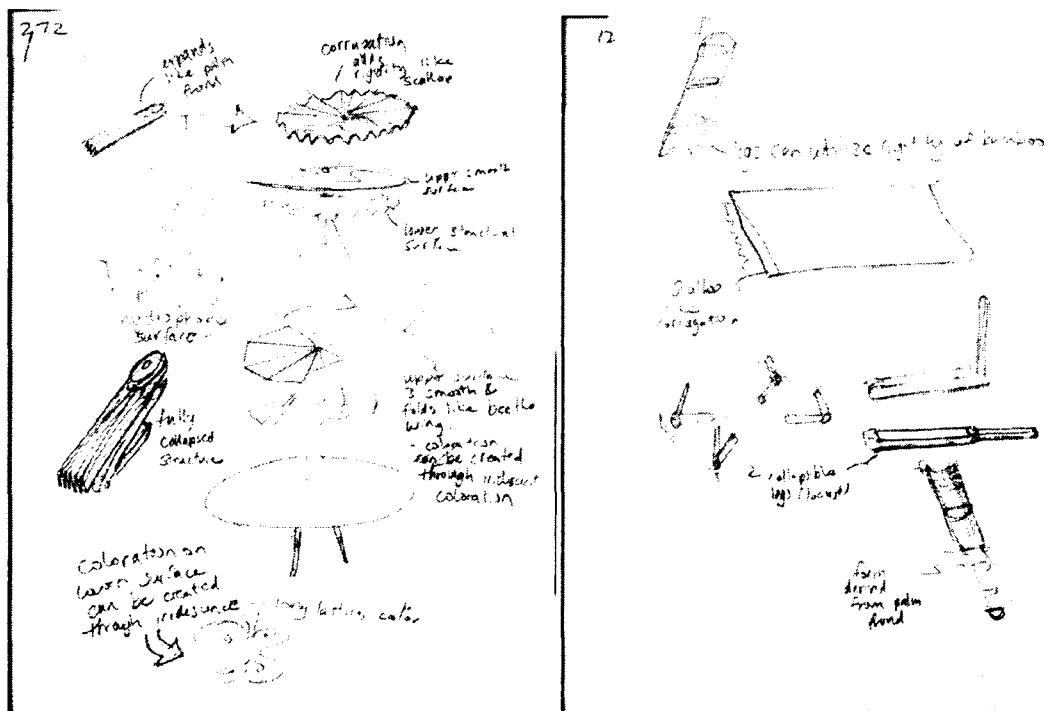 272
expands
like palm
frond
corrugation
adds
rigidity like
scallop
upper smooth
surface
lower structural
surface
surface
fully
collapsed
structure
upper surface
smooth &
folds like beetle
wing
- coloration
can be created
through iridescent
coloration
coloration on
lower surface
can be created
through
long lasting color
12
legs can utilize rigidity of bamboo
collapsible
legs
form
derived
from palm
frond